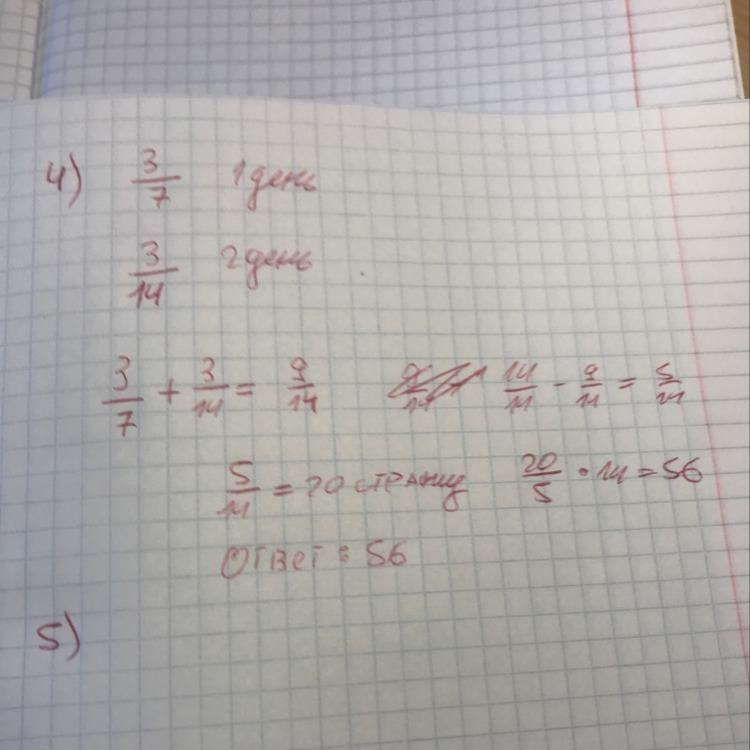 4) 3/7 1 день
3/14 2 день
3/7 + 3/14 = 9/14 14/14 - 9/14 = 5/14
5/14 = 20 страниц 20/5 • 14 = 56
Ответ: 56
5)